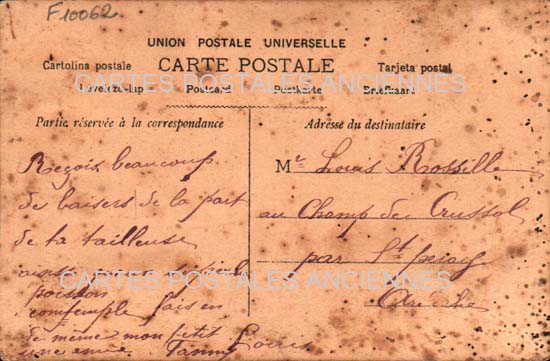 F10062
UNION POSTALE UNIVERSELLE
Cartolina postale CARTE POSTALE Tarjeta postal
Levelezo-lap Postcard Postkarte Briefkaart
CARTES POSTALES ANCIENNES
Partie réservée à la correspondance
Reçois beaucoup
de baisers de la part
de ta tailleuse
poisson
contemple fais en
de même mon petit
Louis
une amie Fanny
Adresse du destinataire
Mr Louis Rosselle
au Champ de Crussol
par St peray
Ardèche
CARTES POSTALES ANCIENNES